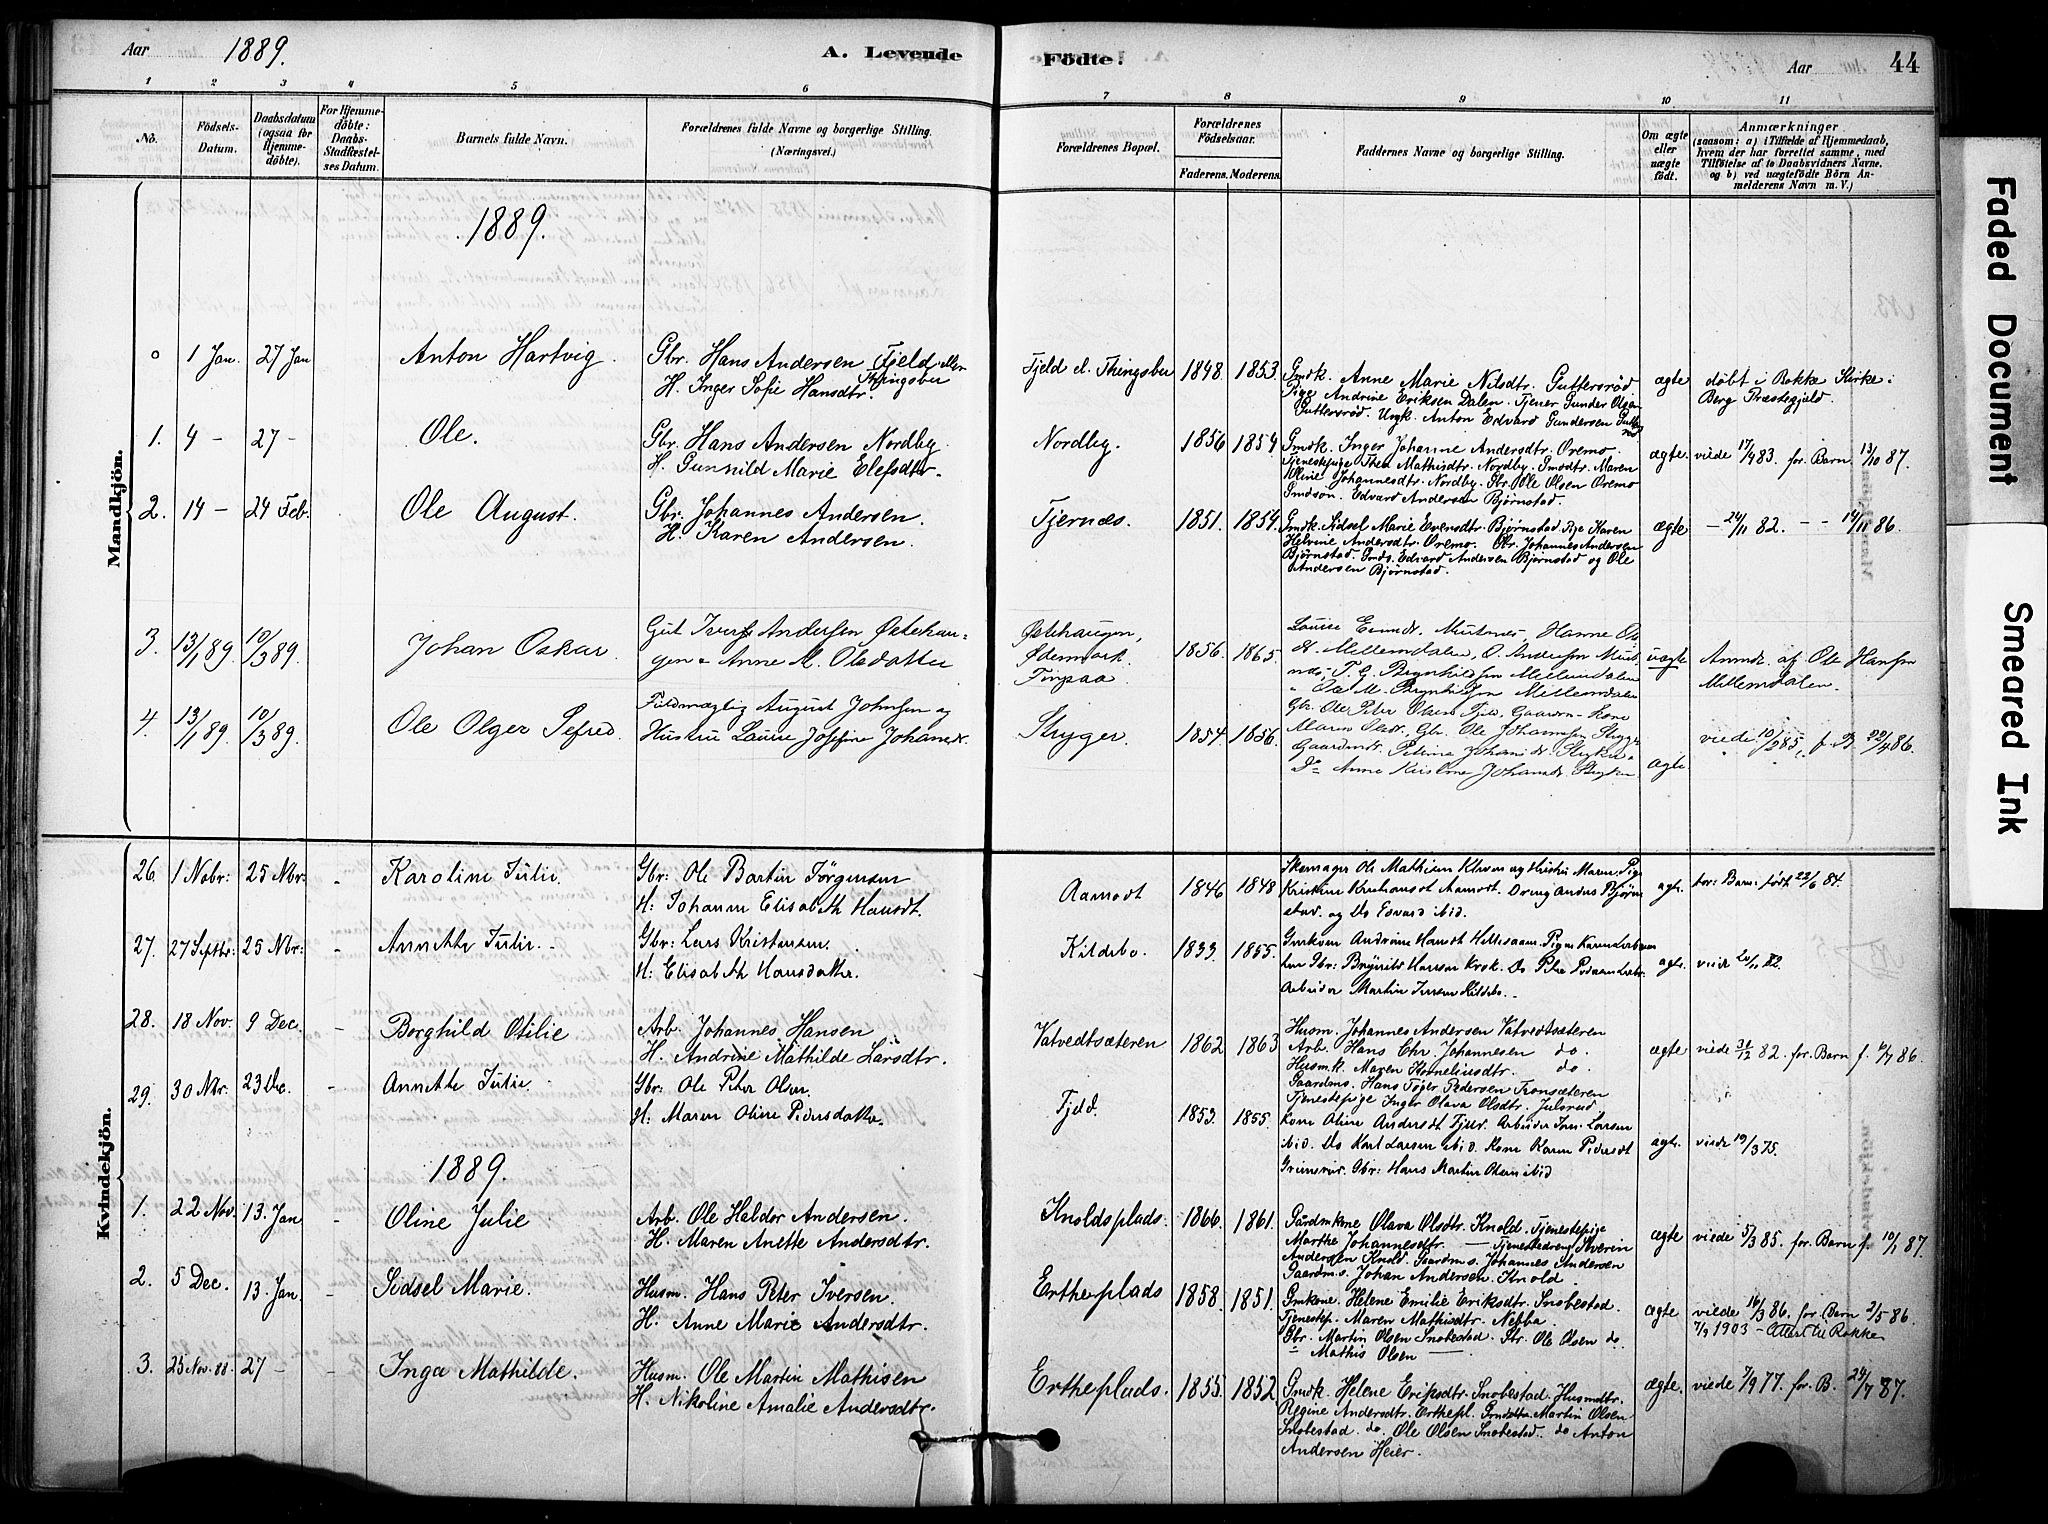 Aar 1889. A. Levende Födte. Aar 44
1 2 3 4 5 6 7 8 9 10 11
No. Födsels-Datum. Daabsdatum (ogsaa för Hjemme-döbte). For Hjemme-döbte: Daabs-Stadfæstel-ses Datum. Barnets fulde Navn. Forældrenes fulde Navne og borgerlige Stilling. (Næringsvei.) Forældrenes Bopæl. Forældrenes Födselsaar. Faderens. Moderens. Faddernes Navne og borgerlige Stilling. Om ægte eller uægte födt. Anmærkninger (saasom: a) i Tilfælde af Hjemmedaab, hvem der har forrettet samme, med Tilföielse af to Daabsvidners Navne, og b) ved uægtefödte Börn An-melderens Navn m. V.)
Mandkjön.
1889.
0 1 Jan. 27 Jan Anton Hartvig. Gbr. Hans Andersen Fjeld eller Thingsbu
H. Inger Sofie Hansdtr. Fjeld el. Thingsbu 1848 1853. Gmdk. Anne Marie Nilsdtr. Guttersrød
Pige Andrine Eriksen Dalen. Tjener Gunder Olsen
Guttersrød. Ungk. Anton Edvard Gundersen ægte døbt i Rokke Kirke i
Berg Præstegjeld.
1. 4 - 27 - Ole. Gbr. Hans Andersen Nordby
H. Gunnild Marie Elefsdtr. Nordby. 1856 1854 Gmdk. Inger Johanne Andersdtr. Oremo.
Tjenestepige Thea Mathisdtr. Nordby. Gmdtr. Maren
Oline Johannesdtr. Nordby. Gbr. Ole Olsen Oremo
Gmdsøn. Edvard Andersen Bjørnstad. ægte. viede 17/4 83. for. Barn 13/10 87.
2. 14 - 24 Feb. Ole August. Gbr. Johannes Andersen.
H. Karen Andersen. Tjernæs. 1851. 1854. Gmdk. Sidsel Marie Evensdtr. Bjørnstad. Pige Karen
Helvine Andersdtr. Oremo. Gbr. Johannes Andersen
Bjørnstad. Gmds. Edvard Andersen Bjørnstad og Ole
Andersen Bjørnstad. ægte - 24/11 82. - - 14/11 86.
3. 13/1 89. 10/3 89. Johan Oskar. Gut Iver Andersen Østehau-
gen & Anne M. Olsdatter Østehaugen,
Ødemark.
1856. 1865. Mellemdalen, O. Andersen
uægte Anmdt. af Ole Hansen
Mellemdalen.
4. 13/1 89. 10/3 89. Ole Olger Sefred. Fuldmægtig August Johnsen og
Hustru Laurse Josefine Johansdr. Stryger. 1854. 1856. Gbr. Ole Peter Olsen Fjeld, Gaardm. Kone
Maren
ægte. viede 10/2 85, f. B. 22/4 86.
Kvindekjön.
26. 1 Nobr: 25 Nbr: - Karoline Julie. Gbr: Ole Bartin Jørgensen
H: Johanne Elisabeth Hansdt. Aamodt 1846 1848 Skomager Ole Mathisen Kleven og Hustru Maren, Pige
Kristine Aamodt. Dreng Anders Bjørn-
stad. og Do Edvard ibid. ægt. for: Barn: født 22/6 84.
27. 27 Septbr: 25 Nbr: - Annette Julie. Gbr: Lars Kristensen
H: Elisabeth Hansdatter. Kildebo. 1833. 1855. Gmkone Andrine Hansdt
Gbr: Brynild Hansen Krok. Do Peter
Arbeider Martin Kildebo. ægt. viede 20/11 82.
28. 18 Nov. 9 Dec. - Borghild Otilie Arb. Johannes Hansen
H. Andrine Mathilde Larsdtr. Vatvedtsæteren 1862 1863 Husm. Johannes Andersen Vatvedtsæteren
Arb. Hans Chr. Johannesen do.
Husmk. Maren Korneliusdtr. do.
Gaardms. Hans Tøger Pedersen Tronsæteren
Tjenestepige Inger Olava Olsdtr. Julsrud ægte viede 31/12 82. for. Barn f. 6/7 86.
29. 30 Nbr. 23 Dec. Annette Julie. Gbr: Ole Peter Olsen.
H: Maren Oline Pedersdatter. Fjeld. 1853. 1855. Kone Oline Andersdt Fjeld. Arbeider Larsen
ibid. Do Karl Larsen ibid. Kone Karen Pedersdt
Grimsrød. Gbr: Hans Martin Olsen ibid ægt. viede 19/3 75.
1889.
1. 22 Nov. 13. Jan - Oline Julie. Arb. Ole Haldor Andersen.
H. Maren Anette Andersdtr. Knoldsplads. 1866. 1861. Gårdmkone Olava Olsdtr. Knold. Tjenestepige
Marthe Johannesdtr. - Tjenestedreng Severin
Andersen Knold. Gaardm.s. Johannes Andersen
Gaardm.s. Johan Andersen Knold. ægte viede 5/3 85. for. Barn f. 10/1 87.
2. 5 Dec. 13 Jan. - Sidsel Marie. Husm. Hans Peter Iversen.
H. Anne Marie Andersdtr. Ertheplads 1858. 1851. Gmkone. Helene Emilie Eriksdtr. Snobestad.
Tjenestep. Maren Mathisdtr. Nebba.
Gbr. Martin Olsen Snobestad. Gbr. Ole Olsen do
" Mathis Olsen - ægte viede 16/3 86. for. Barn 2/5 86.
7/9 1903 - Attest til Rokke
3. 25 Nov. 88. 27 - - Inga Mathilde. Husm. Ole Martin Mathisen
H. Nikoline Amalie Andersdtr. Ertheplads. 1855. 1852 Gmdk. Helene Eriksdtr. Snobestad. Husmdtr.
Regine Andersdtr. Erthepl. Martin Olsen
Snobestad. do. Ole Olsen Snobestad. do Anton
Andersen Heier. ægte. viede 7/9 77. for. B. 24/7 87.
Faded Document
Smeared Ink